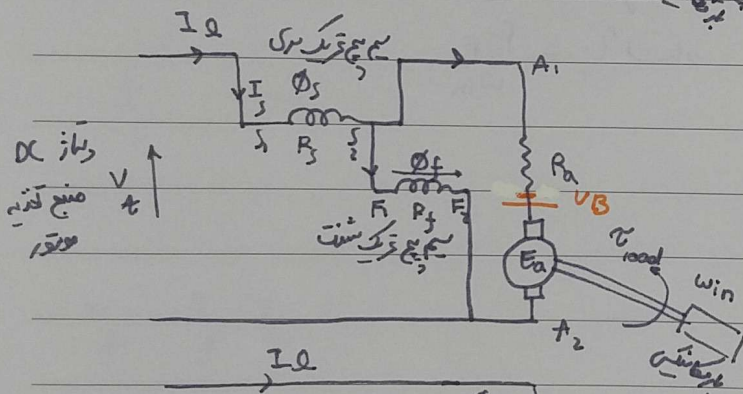 I_l
سیم پیچ تحریک سری
A₁
I_s
φ_s
S₁
R_s
S₂
ولتاژ DC
منبع تغذیه
موتور
V_t
φ_f
F₁
R_f
F₂
سیم پیچ تحریک شنت
R_a
VB
E_a
τ_load
ωm
A₂
بار مکانیکی
I_l